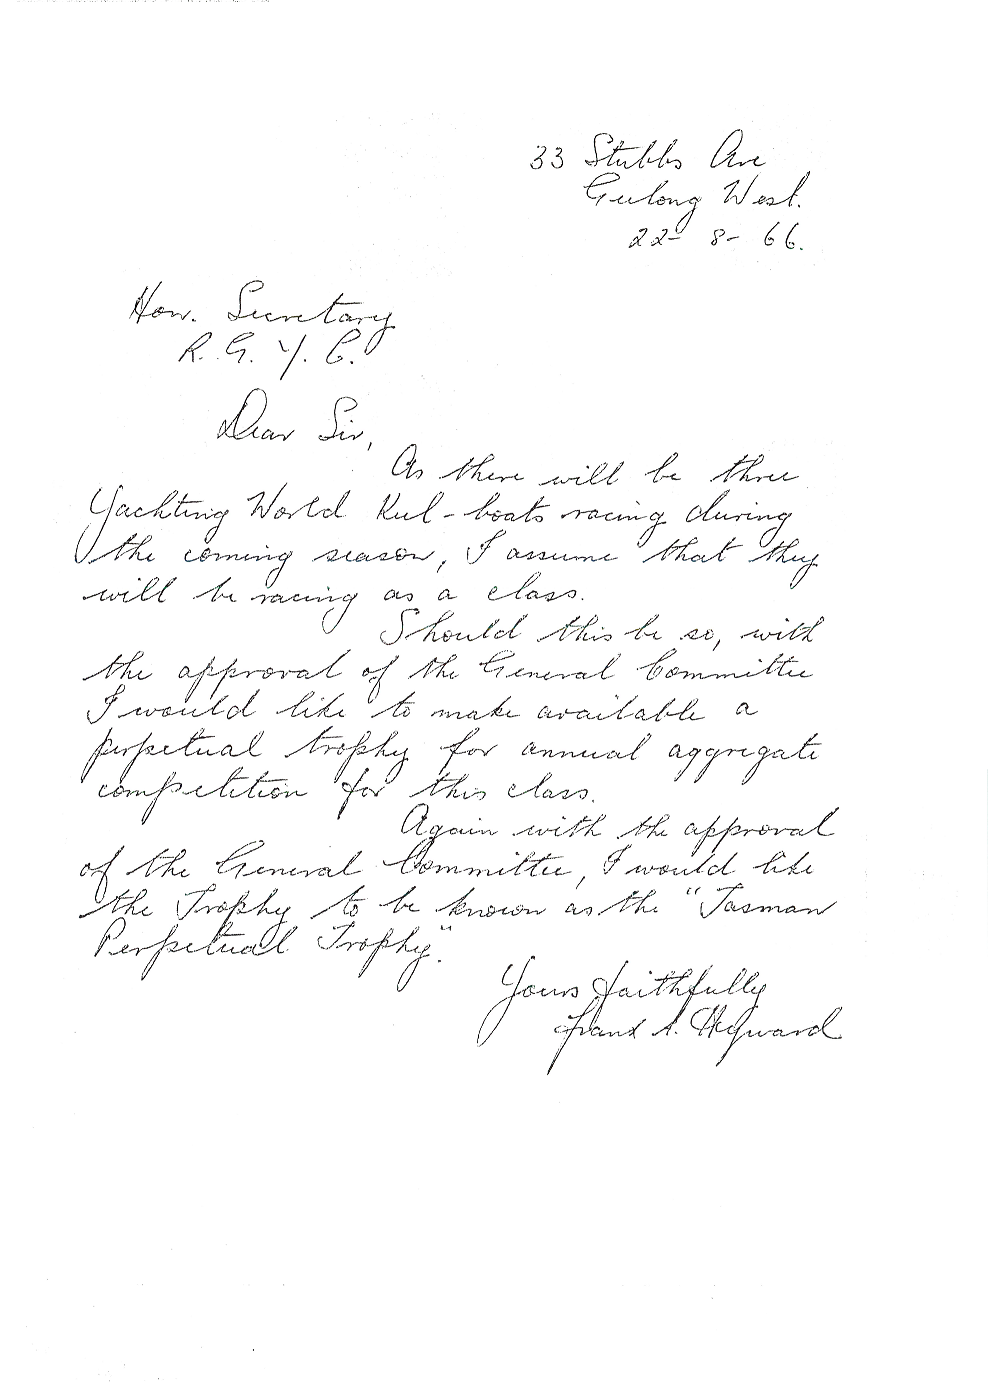 33 Stubbs Ave
Geelong West.
22- 8- 66.
Hon. Secretary
R. G. Y. C.
Dear Sir,
As there will be three
Yachting World Keel-boats racing during
the coming season, I assume that they
will be racing as a class.
Should this be so, with
the approval of the General Committee
I would like to make available a
perpetual trophy for annual aggregate
competition for this class.
Again with the approval
of the General Committee, I would like
the Trophy to be known as the "Tasman
Perpetual Trophy".
Yours faithfully
Frank A. Heyward